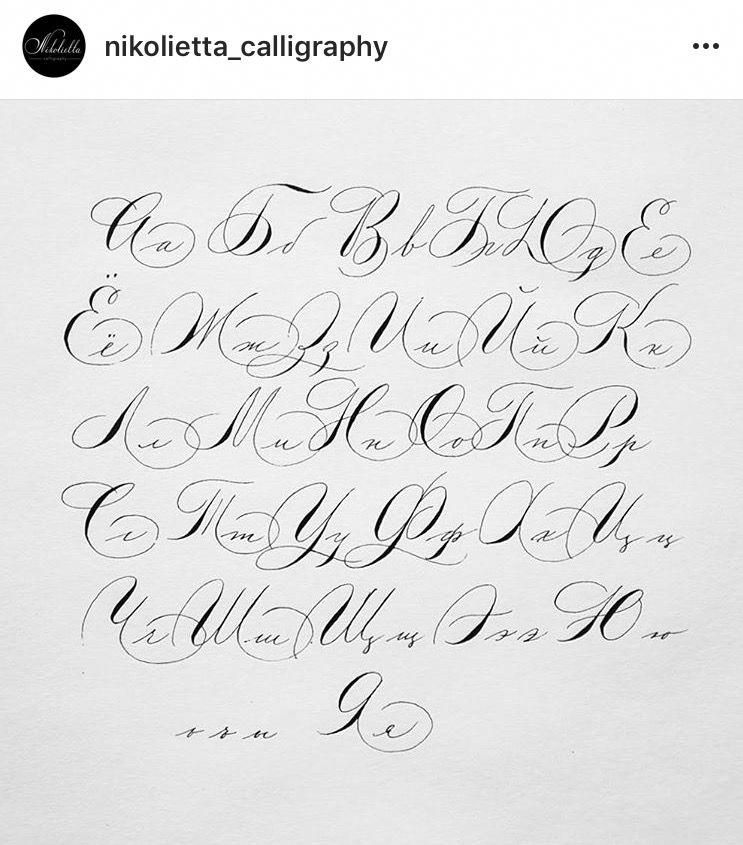 Nikolietta
calligraphy
nikolietta_calligraphy
Аа Бб Вв Гг Дд Ее
Ёё Жж Зз Ии Йй Кк
Лл Мм Нн Оо Пп Рр
Сс Тт Уу Фф Хх Цц
Чч Шш Щщ Эээ Юю
ь ъ ы Яя